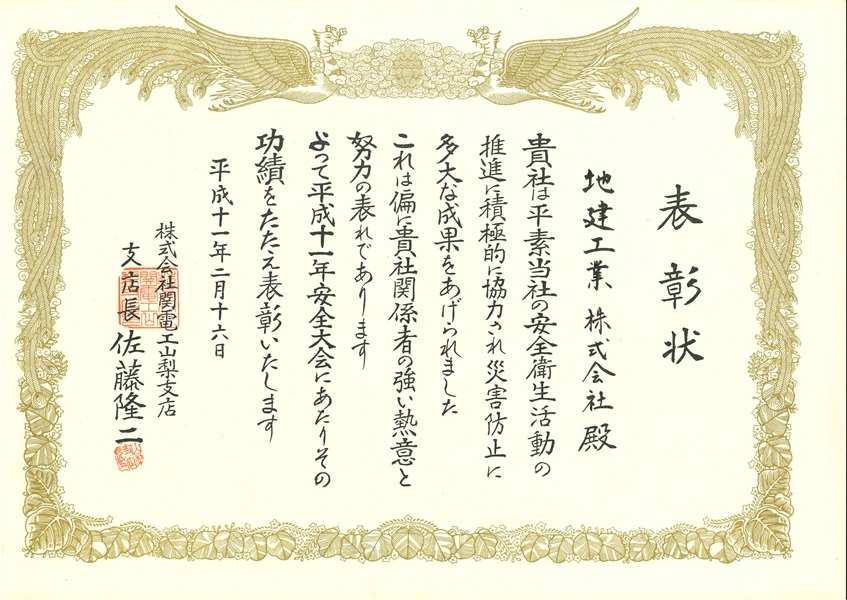 表彰状
地建工業 株式会社 殿
貴社は平素当社の安全衛生活動の
推進に積極的に協力され災害防止に
多大な成果をあげられました
これは偏に貴社関係者の強い熱意と
努力の表れであります
よって平成十一年安全大会にあたりその
功績をたたえ表彰いたします
平成十一年二月十六日
株式会社関電工山梨支店
支店長 佐藤隆二